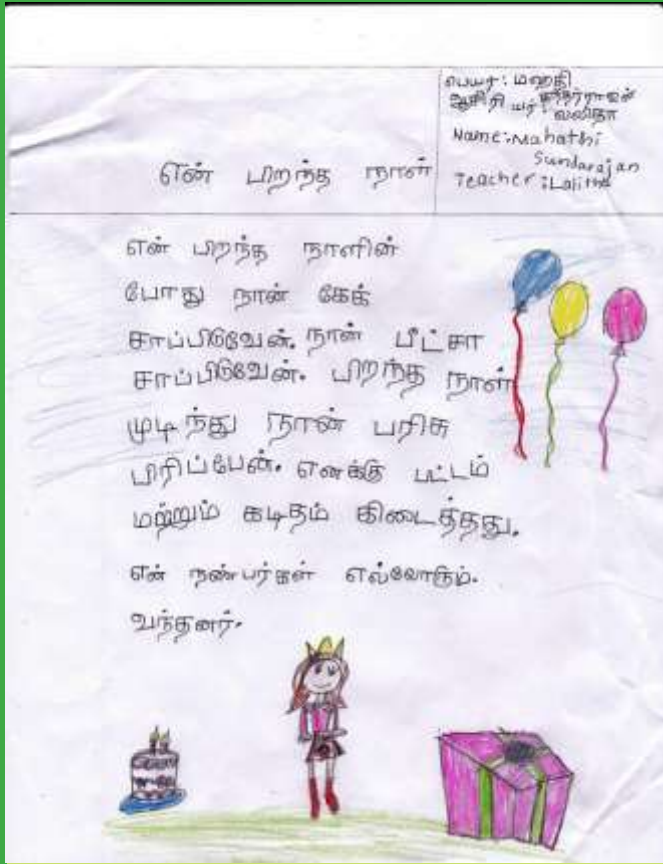 பெயர்: மஹதி
சுந்தர்ராஜன்
ஆசிரியர்: லலிதா
Name: Mahathi
Sundarajan
Teacher: Lalitha
என் பிறந்த நாள்
என் பிறந்த நாளின்
போது நான் கேக்
சாப்பிடுவேன். நான் பீட்சா
சாப்பிடுவேன். பிறந்த நாள்
முடிந்து நான் பரிசு
பிரிப்பேன். எனக்கு பட்டம்
மற்றும் கடிதம் கிடைத்தது.
என் நண்பர்கள் எல்லோரும்.
வந்தனர்.